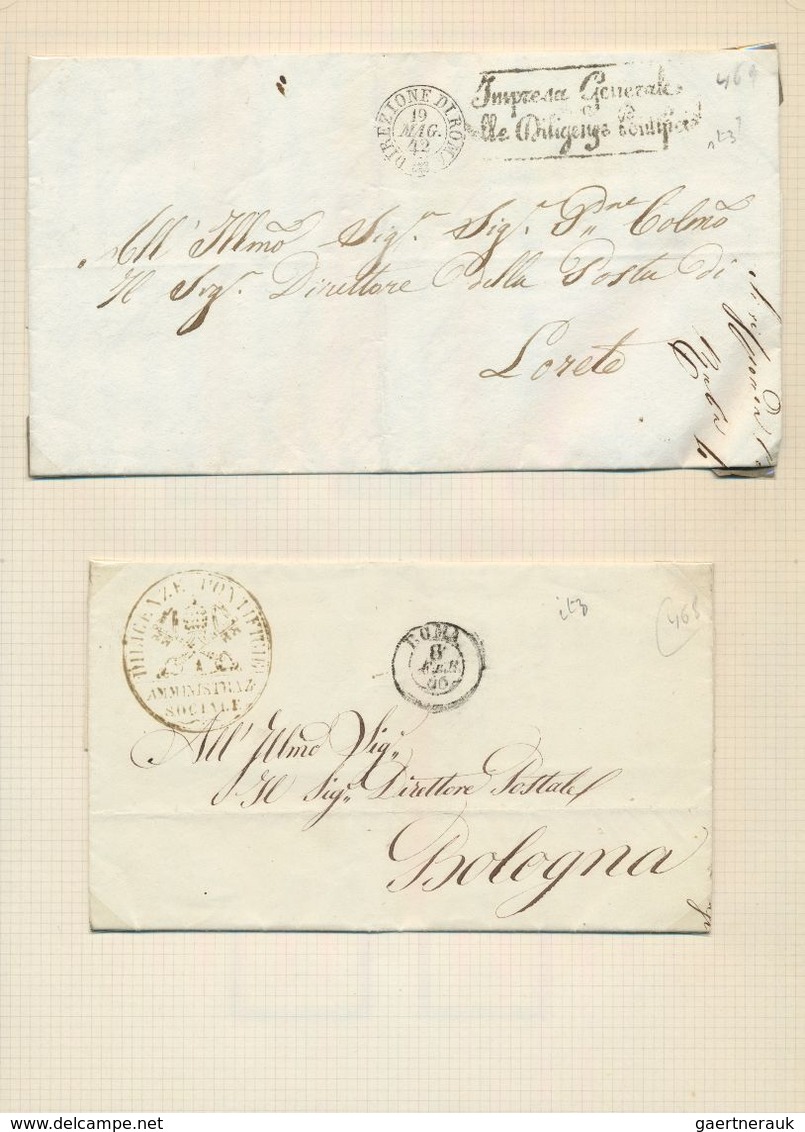 DIREZIONE DI ROMA
19
MAG.
42
Impresa Generale
lle Diligenze Pontificie
469
All' Illmo Sigr. Sigr. Pne Colmo
Il Sigr. Direttore della Posta di
Loreto
DILIGENZE PONTIFICIE
AMMINISTRAZ.
SOCIALE
ROMA
8
FEB.
46
468
All' Illmo Sigr.
Il Sigr. Direttore Postale
Bologna
gaertnerauk